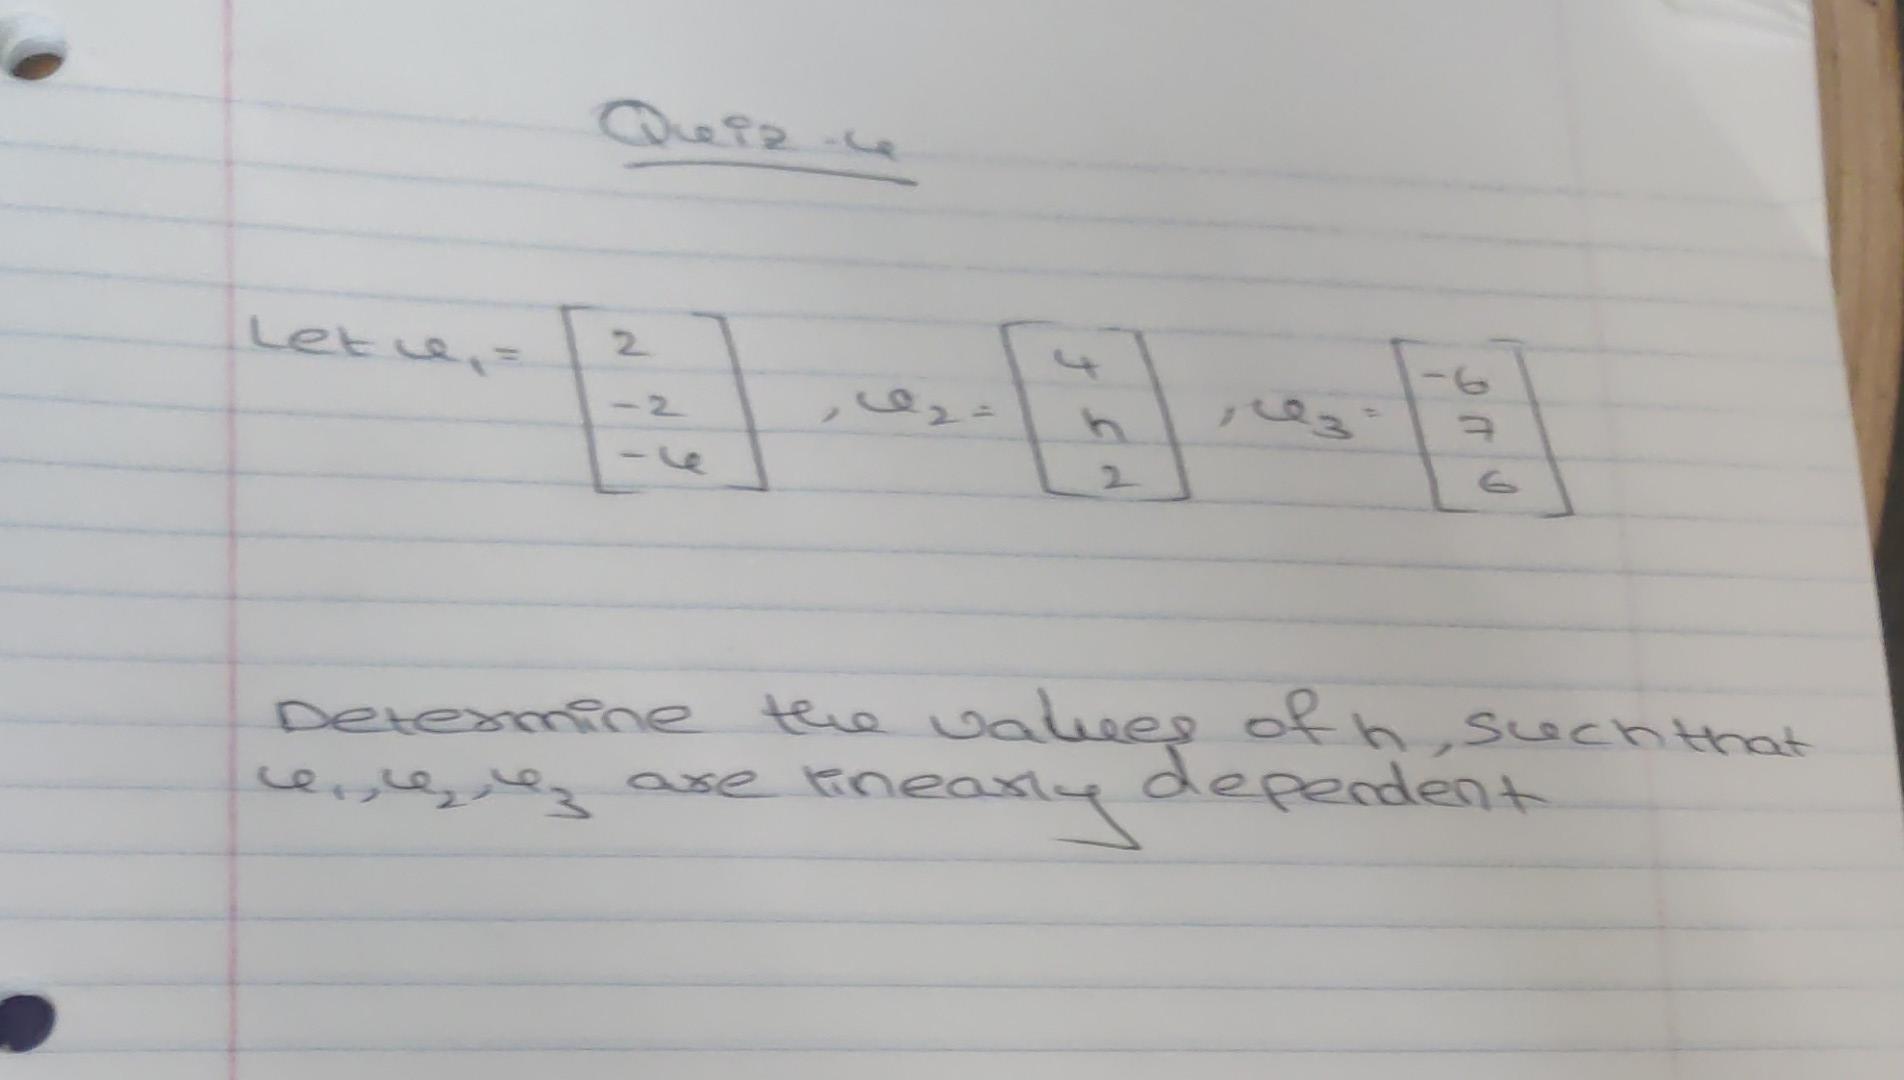 Quiz-4
Let u₁ = [2 -2 -4], u₂ = [4 h 2], u₃ = [-6 7 6]
Determine the values of h, such that
u₁, u₂, u₃ are linearly dependent